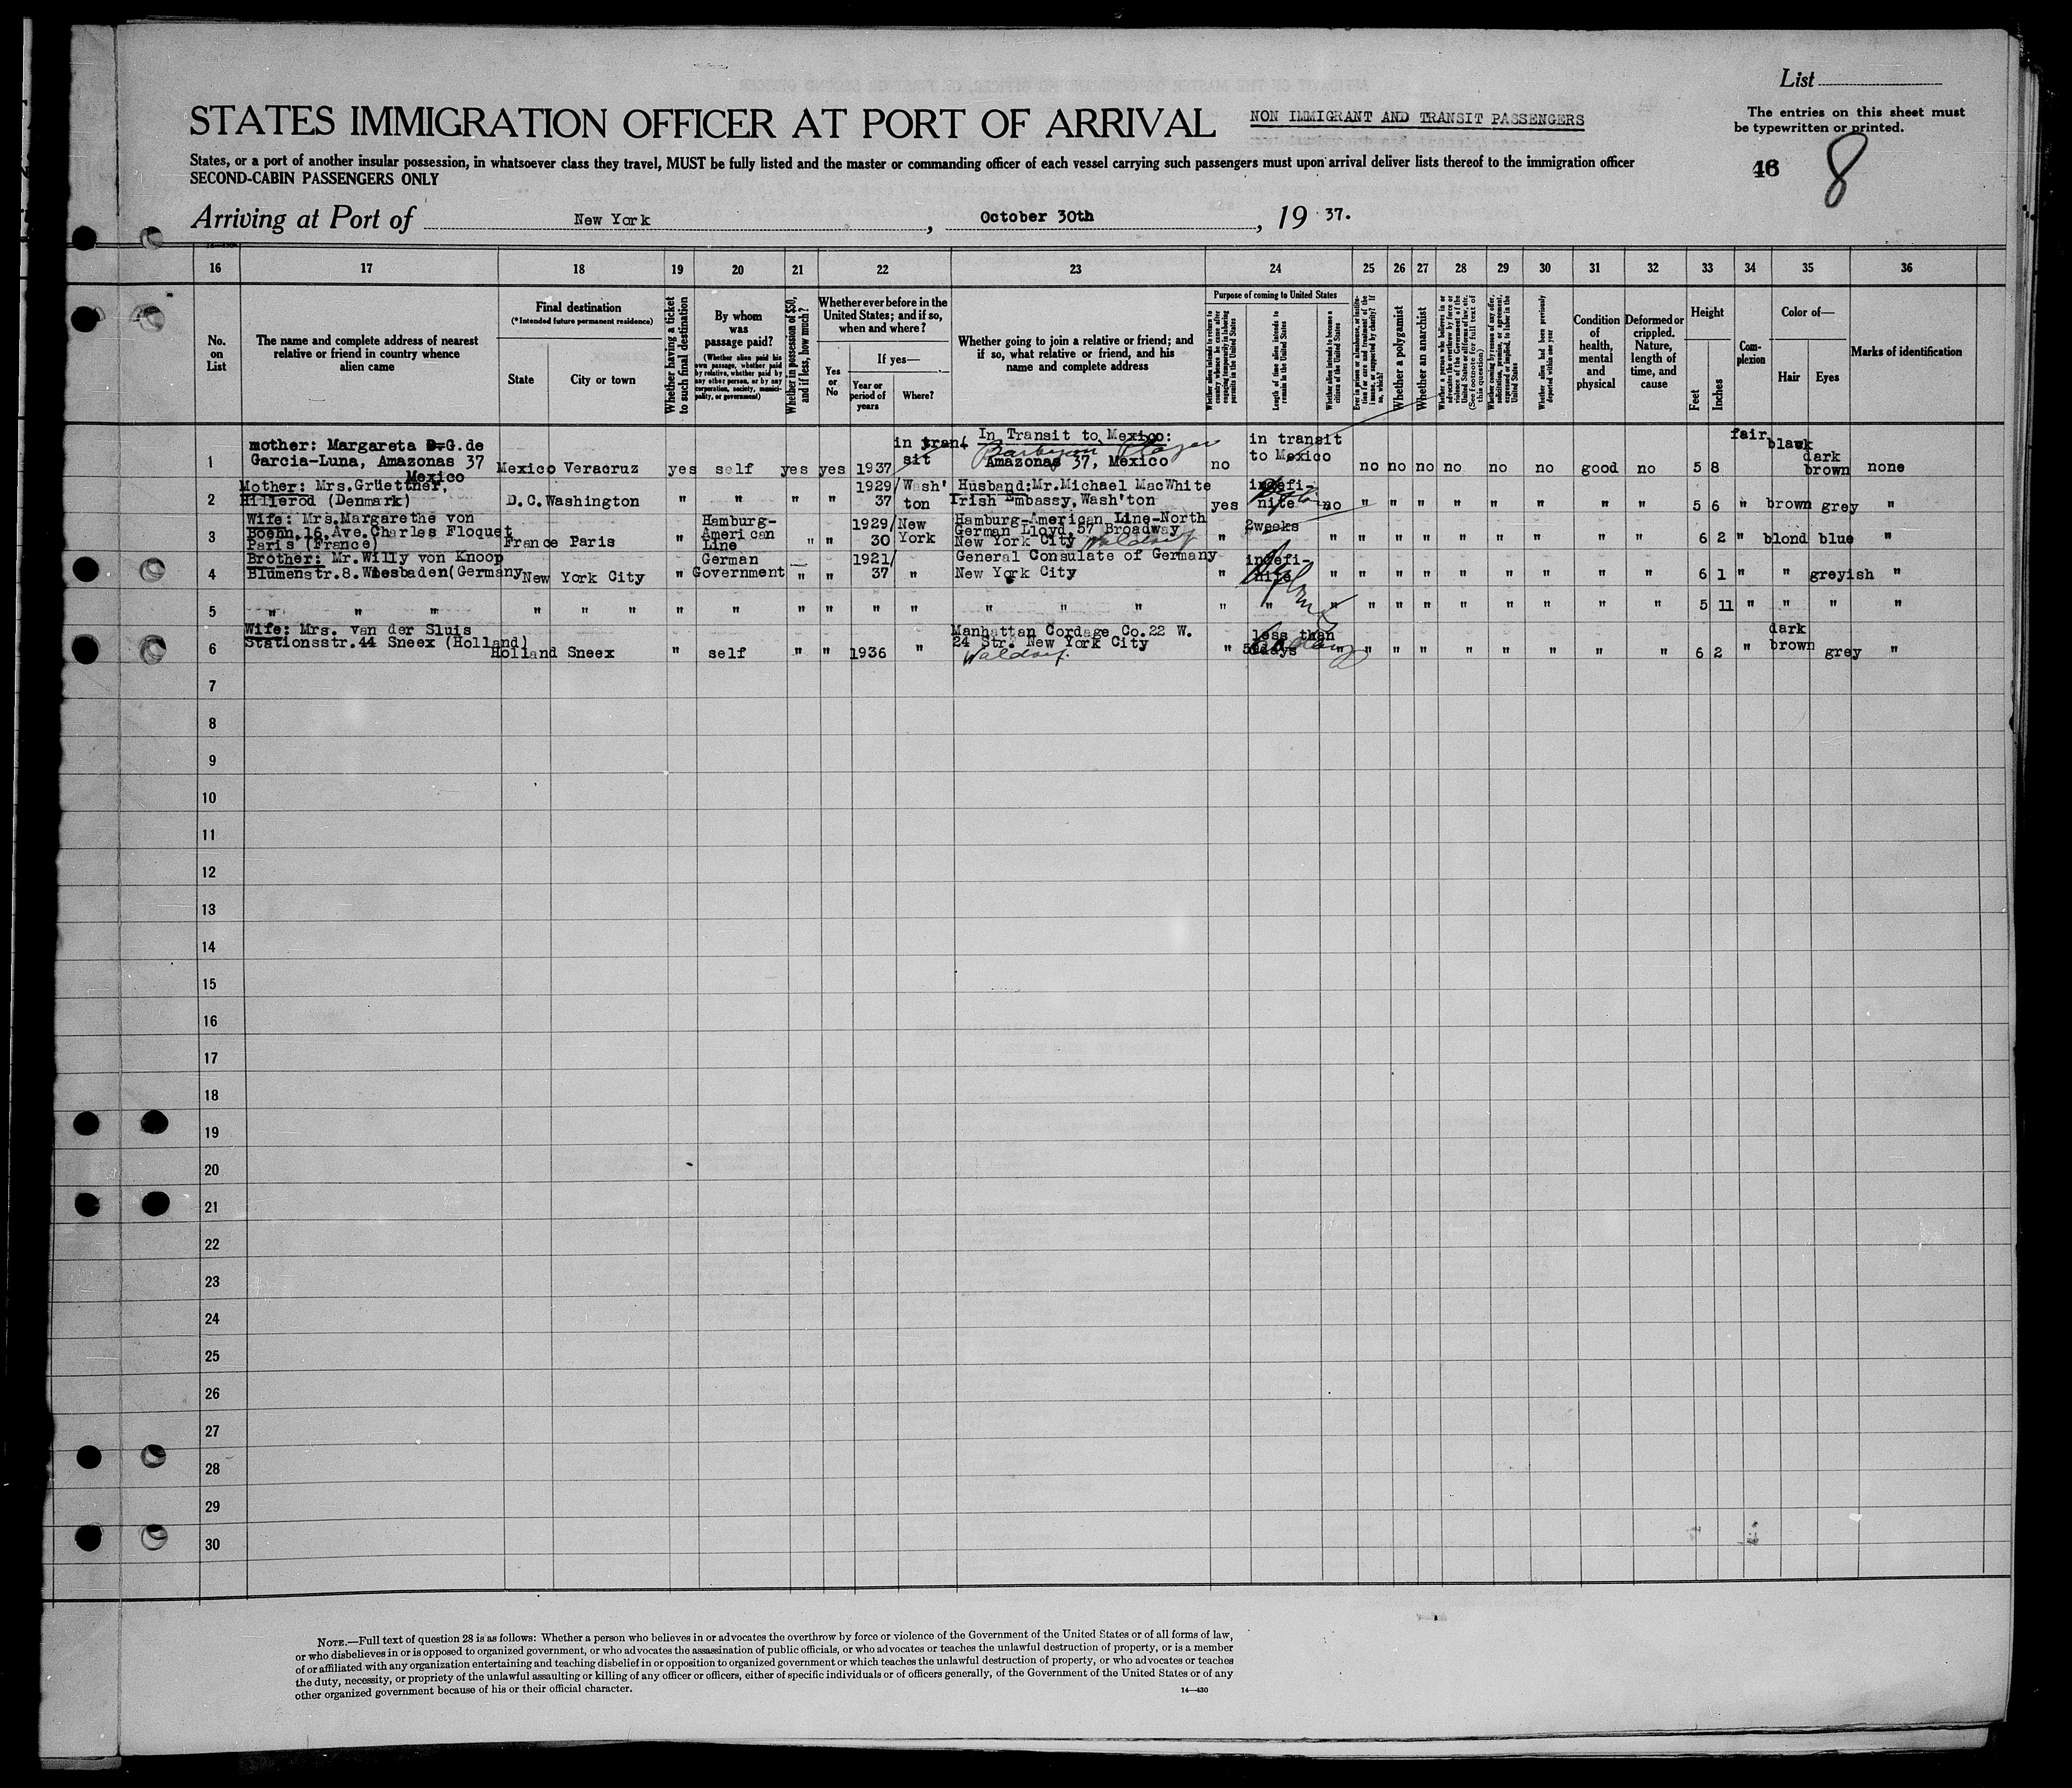 List
STATES IMMIGRATION OFFICER AT PORT OF ARRIVAL
NON IMMIGRANT AND TRANSIT PASSENGERS
The entries on this sheet must
be typewritten or printed.
States, or a port of another insular possession, in whatsoever class they travel, MUST be fully listed and the master or commanding officer of each vessel carrying such passengers must upon arrival deliver lists thereof to the immigration officer
SECOND-CABIN PASSENGERS ONLY
46 8
Arriving at Port of New York, October 30th, 19 37.
16 17 18 19 20 21 22 23 24 25 26 27 28 29 30 31 32 33 34 35 36
No. on List
The name and complete address of nearest relative or friend in country whence alien came
Final destination
(*Intended future permanent residence)
State
City or town
Whether having a ticket to such final destination
By whom was passage paid?
(Whether alien paid his own passage, whether paid by relative, whether paid by any other person, or by any corporation, society, municipality, or government)
Whether in possession of $50, and if less, how much?
Whether ever before in the United States; and if so, when and where?
Yes or No
If yes—
Year or period of years
Where?
Whether going to join a relative or friend; and if so, what relative or friend, and his name and complete address
Purpose of coming to United States
Whether alien intends to return to country whence he came after engaging temporarily in laboring pursuits in the United States
Length of time alien intends to remain in the United States
Whether alien intends to become a citizen of the United States
Whether a polygamist
Whether an anarchist
Whether alien had been previously deported within one year
Condition of health, mental and physical
Deformed or crippled. Nature, length of time, and cause
Height
Feet
Inches
Complexion
Color of—
Hair
Eyes
Marks of identification
1 mother: Margareta D.G.de Garcia-Luna, Amazonas 37 Mexico Mexico Veracruz yes self yes yes 1937 in transit In Transit to Mexico: Amazonas 37, Mexico no in transit to Mexico no no no no no no good no 5 8 fair black dark brown none
2 Mother: Mrs.Grüettner, Hillerod (Denmark) D.C. Washington " " " " 1929/37 Wash'ton Husband:Mr.Michael MacWhite Irish Embassy, Wash'ton yes indefinite no " " " " " " " " 5 6 " brown grey "
3 Wife: Mrs.Margarethe von Boehn,16,Ave.Charles Floquet Paris (France) France Paris " Hamburg-American Line " " 1929/30 New York Hamburg-American Line-North German Lloyd,57 Broadway New York City Waldorf " 2weeks " " " " " " " " " 6 2 " blond blue "
4 Brother: Mr.Willy von Knoop Blumenstr.8.Wiesbaden(Germany New York City " German Government " " 1921/37 " General Consulate of Germany New York City " indefinite " " " " " " " " " 6 1 " " greyish "
5 " " " " " " " " " " " " " " " " " " " " " " " " " " 5 11 " " " "
6 Wife: Mrs. van der Sluis Stationsstr.44 Sneex (Holland) Holland Sneex " self " " 1936 " Manhattan Cordage Co.22 W. 24 Str. New York City Waldorf. " less than days " " " " " " " " " 6 2 " dark brown grey "
7
8
9
10
11
12
13
14
15
16
17
18
19
20
21
22
23
24
25
26
27
28
29
30
NOTE.—Full text of question 28 is as follows: Whether a person who believes in or advocates the overthrow by force or violence of the Government of the United States or of all forms of law,
or who disbelieves in or is opposed to organized government, or who advocates the assassination of public officials, or who advocates or teaches the unlawful destruction of property, or is a member
of or affiliated with any organization entertaining and teaching disbelief in or opposition to organized government or which teaches the unlawful destruction of property, or who advocates or teaches
the duty, necessity, or propriety of the unlawful assaulting or killing of any officer or officers, either of specific individuals or of officers generally, of the Government of the United States or of any
other organized government because of his or their official character.
14—430